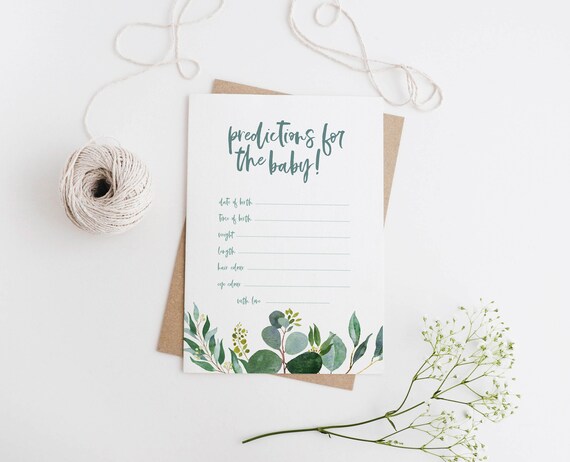 predictions for
the baby!
date of birth
time of birth
weight
length
hair colour
eye colour
with love